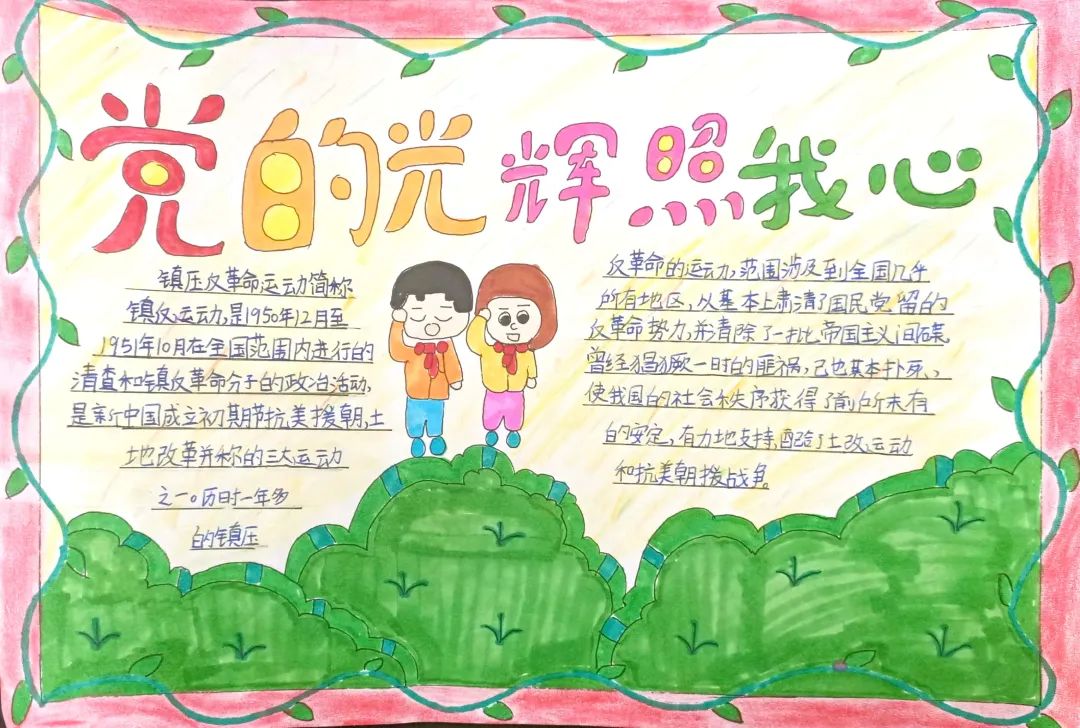 党的光辉照我心
镇压反革命运动简称
镇反运动,是1950年12月至
1951年10月在全国范围内进行的
清查和镇反革命分子的政治活动,
是新中国成立初期节抗美援朝,土
地改革并称的三大运动
之一。历时一年多
的镇压
反革命的运动,范围涉及到全国几乎
所有地区,从基本上肃清了国民党留的
反革命势力,并清除了一批帝国主义间碟
曾经猖獗一时的匪祸,已也其本扑死、,
使我国的社会秩序获得了前所未有
的安定,有力地支持配合了土改运动
和抗美朝援战争。